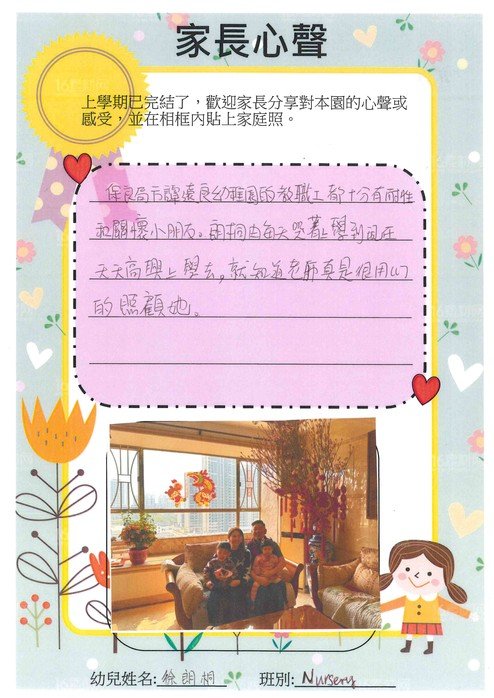 家長心聲
上學期已完結了，歡迎家長分享對本園的心聲或
感受，並在相框內貼上家庭照。
保良局方譚遠良幼稚園的教職工都十分有耐性
和關懷小朋友。朗桐由每天哭着上學到現在
天天高興上學去，就知道老師真是很用心
的照顧她。
幼兒姓名: 徐朗桐 班別: Nursery